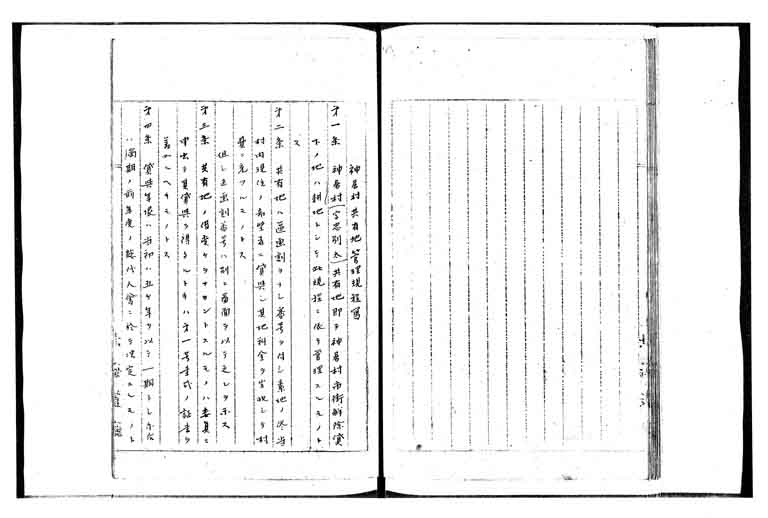 神居村共有地管理規程写
第一条 神居村(字忠別太)共有地即チ神居村市街解除貸
下ノ地ハ耕地トシテ此規程ニ依リ管理スルモノト
ス
第二条 共有地ハ区画割ヲナシ番号ヲ付シ素地ノ侭当
村内現住ノ希望者ニ貸与シ其地料金ヲ
費ニ充ツルモノトス
但シ区画割番号ハ別ニ図面ヲ以テ之レヲ示ス
第三条 共有地ノ借受ケヲナサントスルモノハ委員ニ
申出テ其貸与ヲ得タルトキハ第一号書式ノ証書ヲ
差出スヘキモノトス
第四条 貸与年限ハ当初ハ五ケ年ヲ以テ一期トシ
ハ満期ノ前年度ノ総代人会ニ於テ決定スルモノト